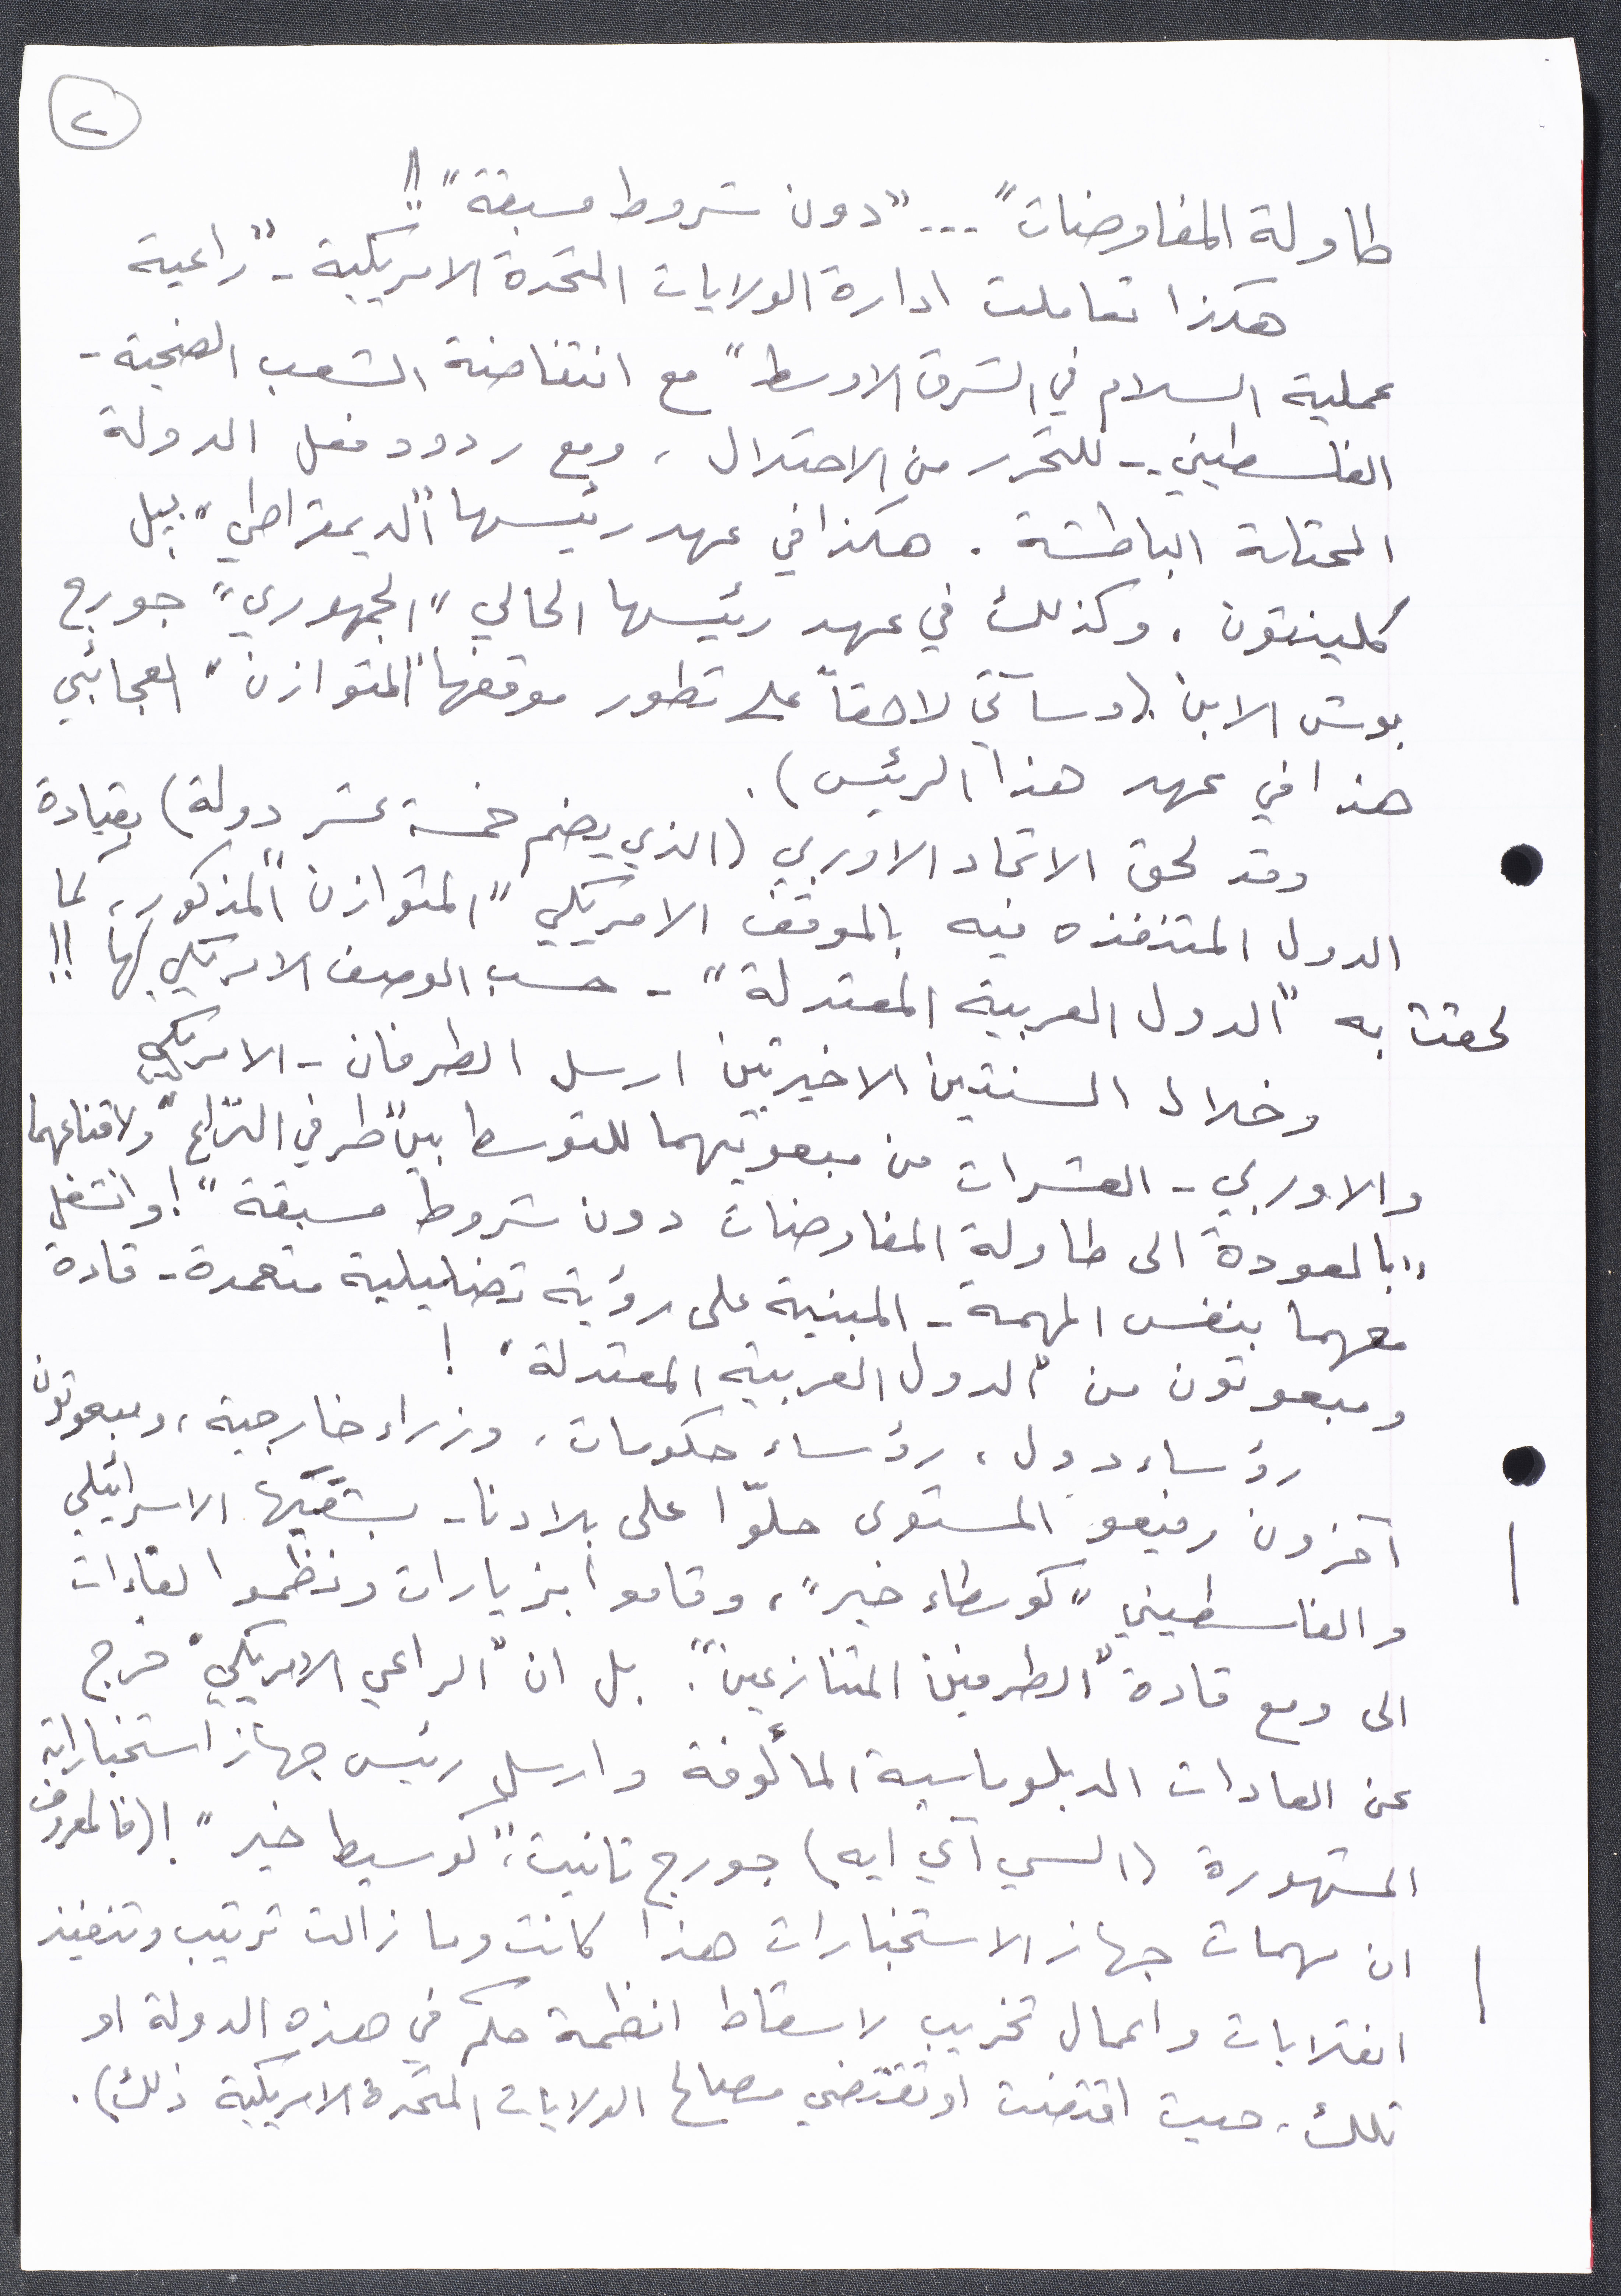 ٢
طاولة المفاوضات"... "دون شروط مسبقة"!!
هكذا تعاملت ادارة الولايات المتحدة الامريكية - "راعية
عملية السلام في الشرق الاوسط" مع انتفاضة الشعب الضحية -
الفلسطيني - للتحرر من الاحتلال، ومع ردود فعل الدولة
المحتلة الباطشة. هكذا في عهد رئيسها "الديمقراطي" بيل
كلينتون. وكذلك في عهد رئيسها الحالي "الجمهوري" جورج
بوش الابن (وسآتي لاحقاً على تطور موقفها "المتوازن" العجائبي
هذا في عهد هذا الرئيس).
وقد لحق الاتحاد الاوربي (الذي يضم خمسة عشر دولة) بقيادة
الدول المتنفذه فيه بالموقف الامريكي "المتوازن" المذكور، كما
لحقت به "الدول العربية المعتدلة" - حسب الوصف الامريكي لها!!
وخلال السنتين الاخيرتين ارسل الطرفان - الامريكي
والاوربي - العشرات من مبعوثيهما للتوسط بين "طرفي النزاع" ولاقناعهما
"بالعودة الى طاولة المفاوضات دون شروط مسبقة"! وانشغل
معهما بنفس المهمة - المبنية على رؤية تضليلية متعمدة - قادة
ومبعوثون من "الدول العربية المعتدلة"!
رؤساء دول، رؤساء حكومات، وزراء خارجية، ومبعوثون
آخرون رفيعو المستوى حلّوا على بلادنا - بشقيّها الاسرائيلي
والفلسطيني "كوسطاء خير"، وقاموا بزيارات ونظموا لقاءات
الى ومع قادة "الطرفين المتنازعين". بل ان "الراعي الامريكي" خرج
عن العادات الدبلوماسية المألوفة وارسل رئيس جهاز استخباراته
المشهورة (السي آي ايه) جورج تانيت، "كوسيط خير"! (فالمعروف
ان مهمات جهاز الاستخبارات هذا كانت وما زالت ترتيب وتنفيذ
انقلابات واعمال تخريب لاسقاط انظمة حكم في هذه الدولة او
تلك. حيث اقتضت او تقتضي مصالح الولايات المتحدة الامريكية ذلك).